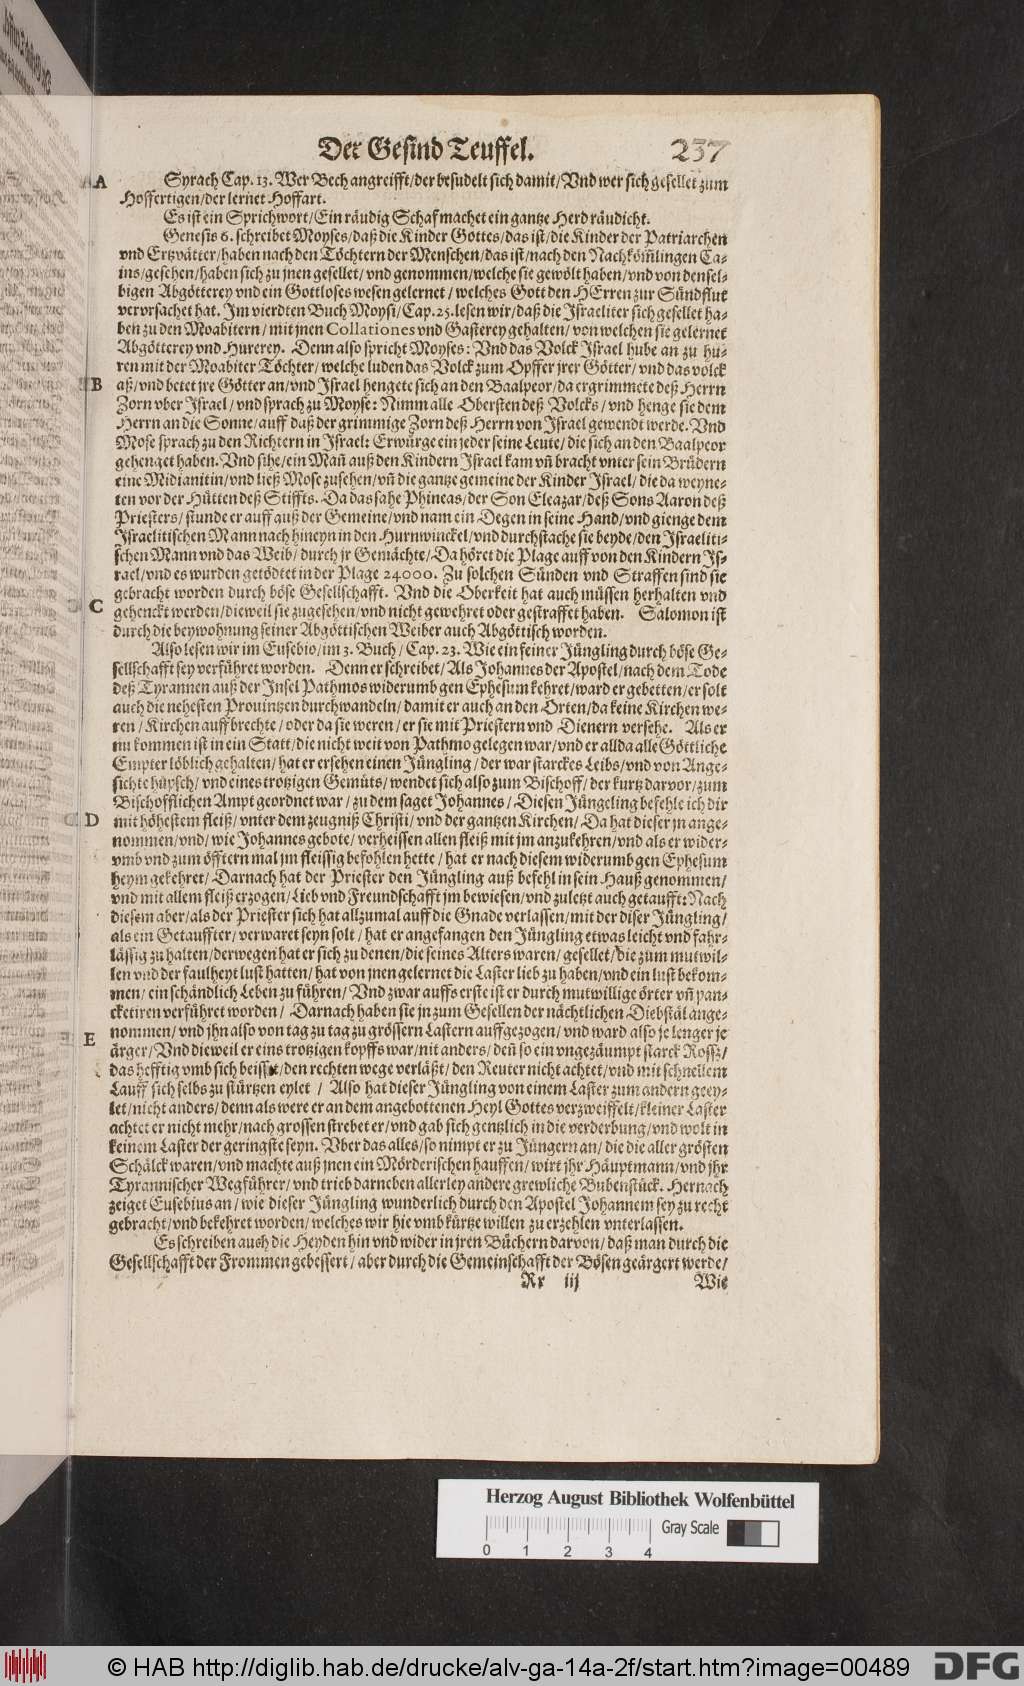 Der Gesind Teuffel. 237
A Syrach Cap. 13. Wer Bech angreifft/der besudelt sich damit/Vnd wer sich gesellet zum
Hoffertigen/der lernet Hoffart.
Es ist ein Sprichwort/Ein räudig Schaf machet ein gantze Herd räudicht.
Genesis 6. schreibet Moyses/daß die Kinder Gottes/das ist/die Kinder der Patriarchen
vnd Ertzvätter/haben nach den Töchtern der Menschen/das ist/nach den Nachköm̃lingen Ca-
ins/gesehen/haben sich zu jnen gesellet/vnd genommen/welche sie gewölt haben/vnd von densel-
bigen Abgötterey vnd ein Gottloses wesen gelernet/welches Gott den HErren zur Sündflut
vervrsachet hat. Im vierdten Buch Moysi/Cap. 25. lesen wir/daß die Israeliter sich gesellet ha-
ben zu den Moabitern/mit jnen Collationes vnd Gasterey gehalten/von welchen sie gelernet
Abgötterey vnd Hurerey. Denn also spricht Moyses: Vnd das Volck Israel hube an zu hu-
ren mit der Moabiter Töchter/welche luden das Volck zum Opffer jrer Götter/vnd das völck
B aß/vnd betet jre Götter an/vnd Israel hengete sich an den Baalpeor/da ergrimmete deß Herrn
Zorn vber Israel/vnd sprach zu Moyse: Nimm alle Obersten deß Volcks/vnd henge sie dem
Herrn an die Sonne/auff daß der grimmige Zorn deß Herrn von Israel gewendt werde. Vnd
Mose sprach zu den Richtern in Israel: Erwürge ein jeder seine Leute/die sich an den Baalpeor
gehenget haben. Vnd sihe/ein Mañ auß den Kindern Israel kam vñ bracht vnter sein Brüdern
eine Midianitin/vnd ließ Mose zusehen/vñ die gantze gemeine der Kinder Israel/die da weyne-
ten vor der Hütten deß Stiffts. Da das sahe Phineas/der Son Eleazar/deß Sons Aaron deß
Priesters/stunde er auff auß der Gemeine/vnd nam ein Degen in seine Hand/vnd gienge dem
Israelitischen Mann nach hineyn in den Hurnwinckel/vnd durchstache sie beyde/den Israeliti-
schen Mann vnd das Weib/durch jr Gemächte/Da höret die Plage auff von den Kindern Is-
rael/vnd es wurden getödtet in der Plage 24000. Zu solchen Sünden vnd Straffen sind sie
gebracht worden durch böse Gesellschafft. Vnd die Oberkeit hat auch müssen herhalten vnd
C gehenckt werden/dieweil sie zugesehen/vnd nicht gewehret oder gestraffet haben. Salomon ist
durch die beywohnung seiner Abgöttischen Weiber auch Abgöttisch worden.
Also lesen wir im Eusebio/im 3. Buch/Cap. 23. Wie ein feiner Jüngling durch böse Ge-
sellschafft sey verführet worden. Denn er schreibet/Als Johannes der Apostel/nach dem Tode
deß Tyrannen auß der Insel Pathmos widerumb gen Ephesum kehret/ward er gebetten/er solt
auch die nehesten Prouintzen durchwandeln/damit er auch an den Orten/da keine Kirchen we-
ren/Kirchen auffbrechte/oder da sie weren/er sie mit Priestern vnd Dienern versehe. Als er
nu kommen ist in ein Statt/die nicht weit von Pathmo gelegen war/vnd er allda alle Göttliche
Empter löblich gehalten/hat er ersehen einen Jüngling/der war starckes Leibs/vnd von Ange-
sichte hüpsch/vnd eines trotzigen Gemüts/wendet sich also zum Bischoff/der kurtz darvor/zum
Bischofflichen Ampt geordnet war/zu dem saget Johannes/Diesen Jüngeling befehle ich dir
D mit höhestem fleiß/vnter dem zeugniß Christi/vnd der gantzen Kirchen/Da hat dieser jn ange-
nommen/vnd/wie Johannes gebote/verheissen allen fleiß mit jm anzukehren/vnd als er wider-
vmb vnd zum öfftern mal jm fleissig befohlen hette/hat er nach diesem widerumb gen Ephesum
heym gekehret/Darnach hat der Priester den Jüngling auß befehl in sein Hauß genommen/
vnd mit allem fleiß erzogen/Lieb vnd Freundschafft jm bewiesen/vnd zuletzt auch getaufft: Nach
diesem aber/als der Priester sich hat allzumal auff die Gnade verlassen/mit der diser Jüngling/
als ein Getauffter/verwaret seyn solt/hat er angefangen den Jüngling etwas leicht vnd fahr-
lässig zu halten/derwegen hat er sich zu denen/die seines Alters waren/gesellet/die zum mutwil-
len vnd der faulheyt lust hatten/hat von jnen gelernet die Laster lieb zu haben/vnd ein lust bekom-
men/ein schändlich Leben zu führen/Vnd zwar auffs erste ist er durch mutwillige örter vñ pan-
cketiren verführet worden/Darnach haben sie jn zum Gesellen der nächtlichen Diebstäl ange-
E nommen/vnd jhn also von tag zu tag zu grössern Lastern auffgezogen/vnd ward also je lenger je
ärger/Vnd dieweil er eins trotzigen kopffs war/nit anders/deñ so ein vngezäumpt starck Rossz/
das hefftig vmb sich beisst/den rechten wege verläßt/den Reuter nicht achtet/vnd mit schnellem
Lauff sich selbs zu stürtzen eylet/Also hat dieser Jüngling von einem Laster zum andern geey-
let/nicht anders/denn als were er an dem angebottenen Heyl Gottes verzweiffelt/kleiner Laster
achtet er nicht mehr/nach grossen strebet er/vnd gab sich gentzlich in die verderbung/vnd wolt in
keinem Laster der geringste seyn. Vber das alles/so nimpt er zu Jüngern an/die die aller grösten
Schälck waren/vnd machte auß jnen ein Mörderischen hauffen/wirt jhr Häuptmann/vnd jhr
Tyrannischer Wegführer/vnd trieb darneben allerley andere grewliche Bubenstück. Hernach
zeiget Eusebius an/wie dieser Jüngling wunderlich durch den Apostel Johannem sey zu recht
gebracht/vnd bekehret worden/welches wir hie vmb kürtze willen zu erzehlen vnterlassen.
Es schreiben auch die Heyden hin vnd wider in jren Büchern darvon/daß man durch die
Gesellschafft der Frommen gebessert/aber durch die Gemeinschafft der Bösen geärgert werde/
Rr iij Wie
Herzog August Bibliothek Wolfenbüttel
Gray Scale
0 1 2 3 4
© HAB http://diglib.hab.de/drucke/alv-ga-14a-2f/start.htm?image=00489 DFG